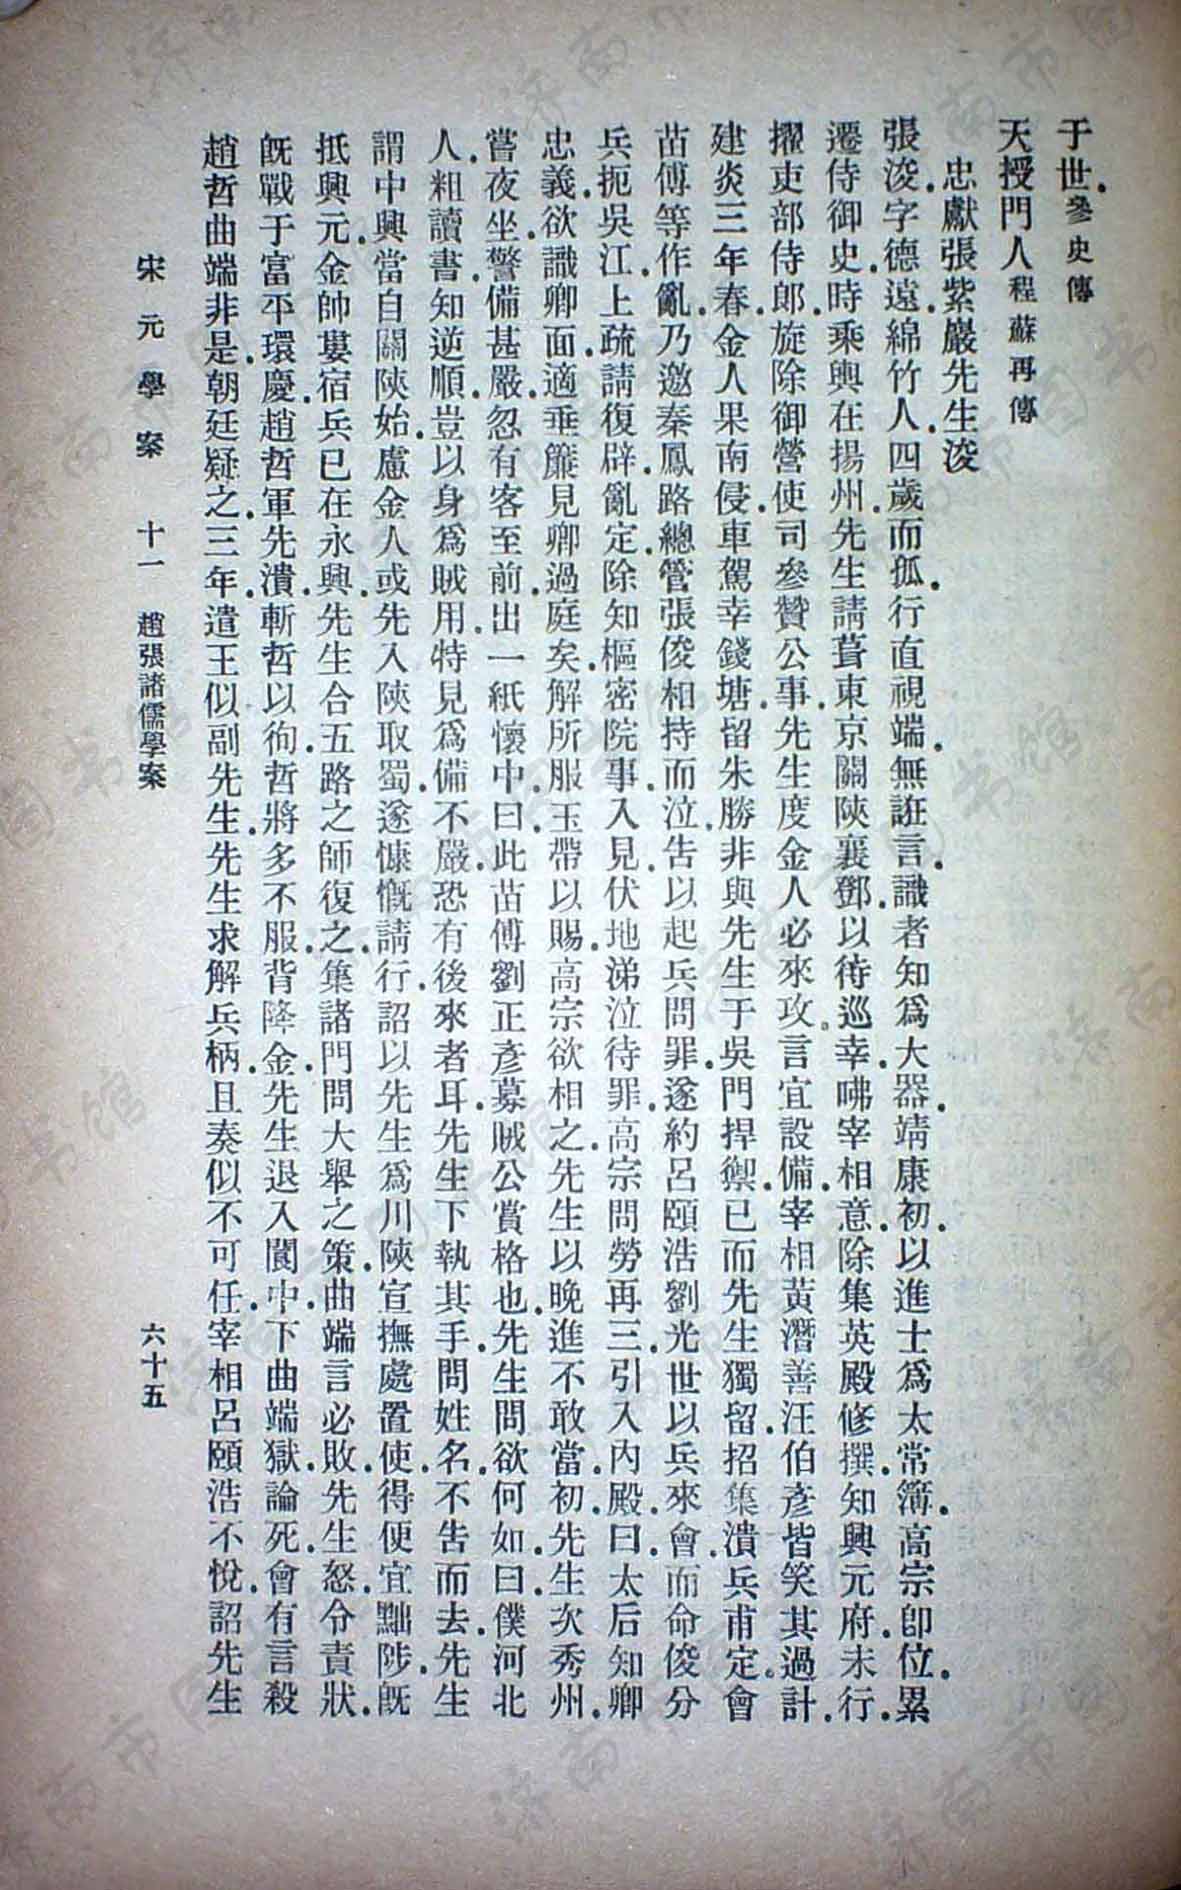 于世.參史傳
天授門人程蘇再傳
忠獻張紫巖先生浚
張浚.字德遠.綿竹人.四歲而孤.行直視端.無誑言.識者知爲大器.靖康初.以進士爲太常簿.高宗卽位.累
遷侍御史.時乘輿在揚州.先生請葺東京關陝襄鄧.以待巡幸.咈宰相意.除集英殿修撰.知興元府.未行.
擢吏部侍郎.旋除御營使司參贊公事.先生度金人必來攻.言宜設備.宰相黃潛善汪伯彥皆笑其過計.
建炎三年春.金人果南侵.車駕幸錢塘.留朱勝非與先生于吳門捍禦.已而先生獨留.招集潰兵甫定.會
苗傅等作亂.乃邀秦鳳路總管張俊相持而泣.告以起兵問罪.遂約呂頤浩劉光世以兵來會.而命俊分
兵扼吳江.上疏請復辟.亂定.除知樞密院事.入見.伏地涕泣待罪.高宗問勞再三.引入內殿.曰.太后知卿
忠義.欲識卿面.適垂簾見卿過庭矣.解所服玉帶以賜.高宗欲相之.先生以晚進不敢當.初.先生次秀州.
嘗夜坐.警備甚嚴.忽有客至前.出一紙懷中曰.此苗傅劉正彥募賊公賞格也.先生問欲何如.曰.僕河北
人.粗讀書.知逆順.豈以身爲賊用.特見爲備不嚴.恐有後來者耳.先生下執其手.問姓名.不告而去.先生
謂中興當自關陝始.慮金人或先入陝取蜀.遂慷慨請行.詔以先生爲川陝宣撫處置使.得便宜黜陟.旣
抵興元.金帥婁宿兵已在永興.先生合五路之師復之.集諸門問大舉之策.曲端言必敗.先生怒.令責狀.
旣戰于富平.環慶趙哲軍先潰.斬哲以徇.哲將多不服.背降金.先生退入閬中.下曲端獄.論死.會有言殺
趙哲曲端非是.朝廷疑之.三年.遣王似副先生.先生求解兵柄.且奏似不可任.宰相呂頤浩不悅.詔先生
宋元學案 十一 趙張諸儒學案 六十五